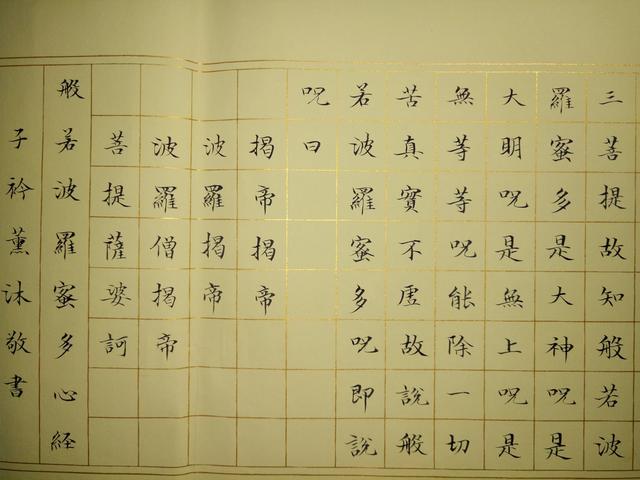 三菩提故知般若波
羅蜜多是大神呪是
大明呪是無上呪是
無等等呪能除一切
苦真實不虛故說般
若波羅蜜多呪即說
呪曰
揭帝揭帝
波羅揭帝
波羅僧揭帝
菩提薩婆訶
般若波羅蜜多心経
子衿薰沐敬書